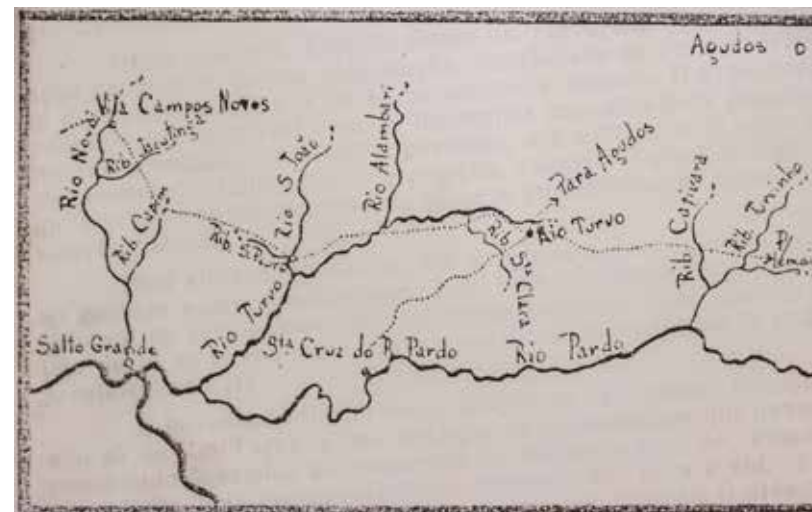 Agudos
Via Campos Novos
Rio Novo
Rib.
Rib. Capim
Rib. S. P.
Rio S. João
Rio Alambari
Para Agudos
Rio Turvo
Rib. Sta Clara
Rib. Capivara
Rib. Turvinho
P/
Rio Turvo
Salto Grande
Sta Cruz do R. Pardo
Rio Pardo